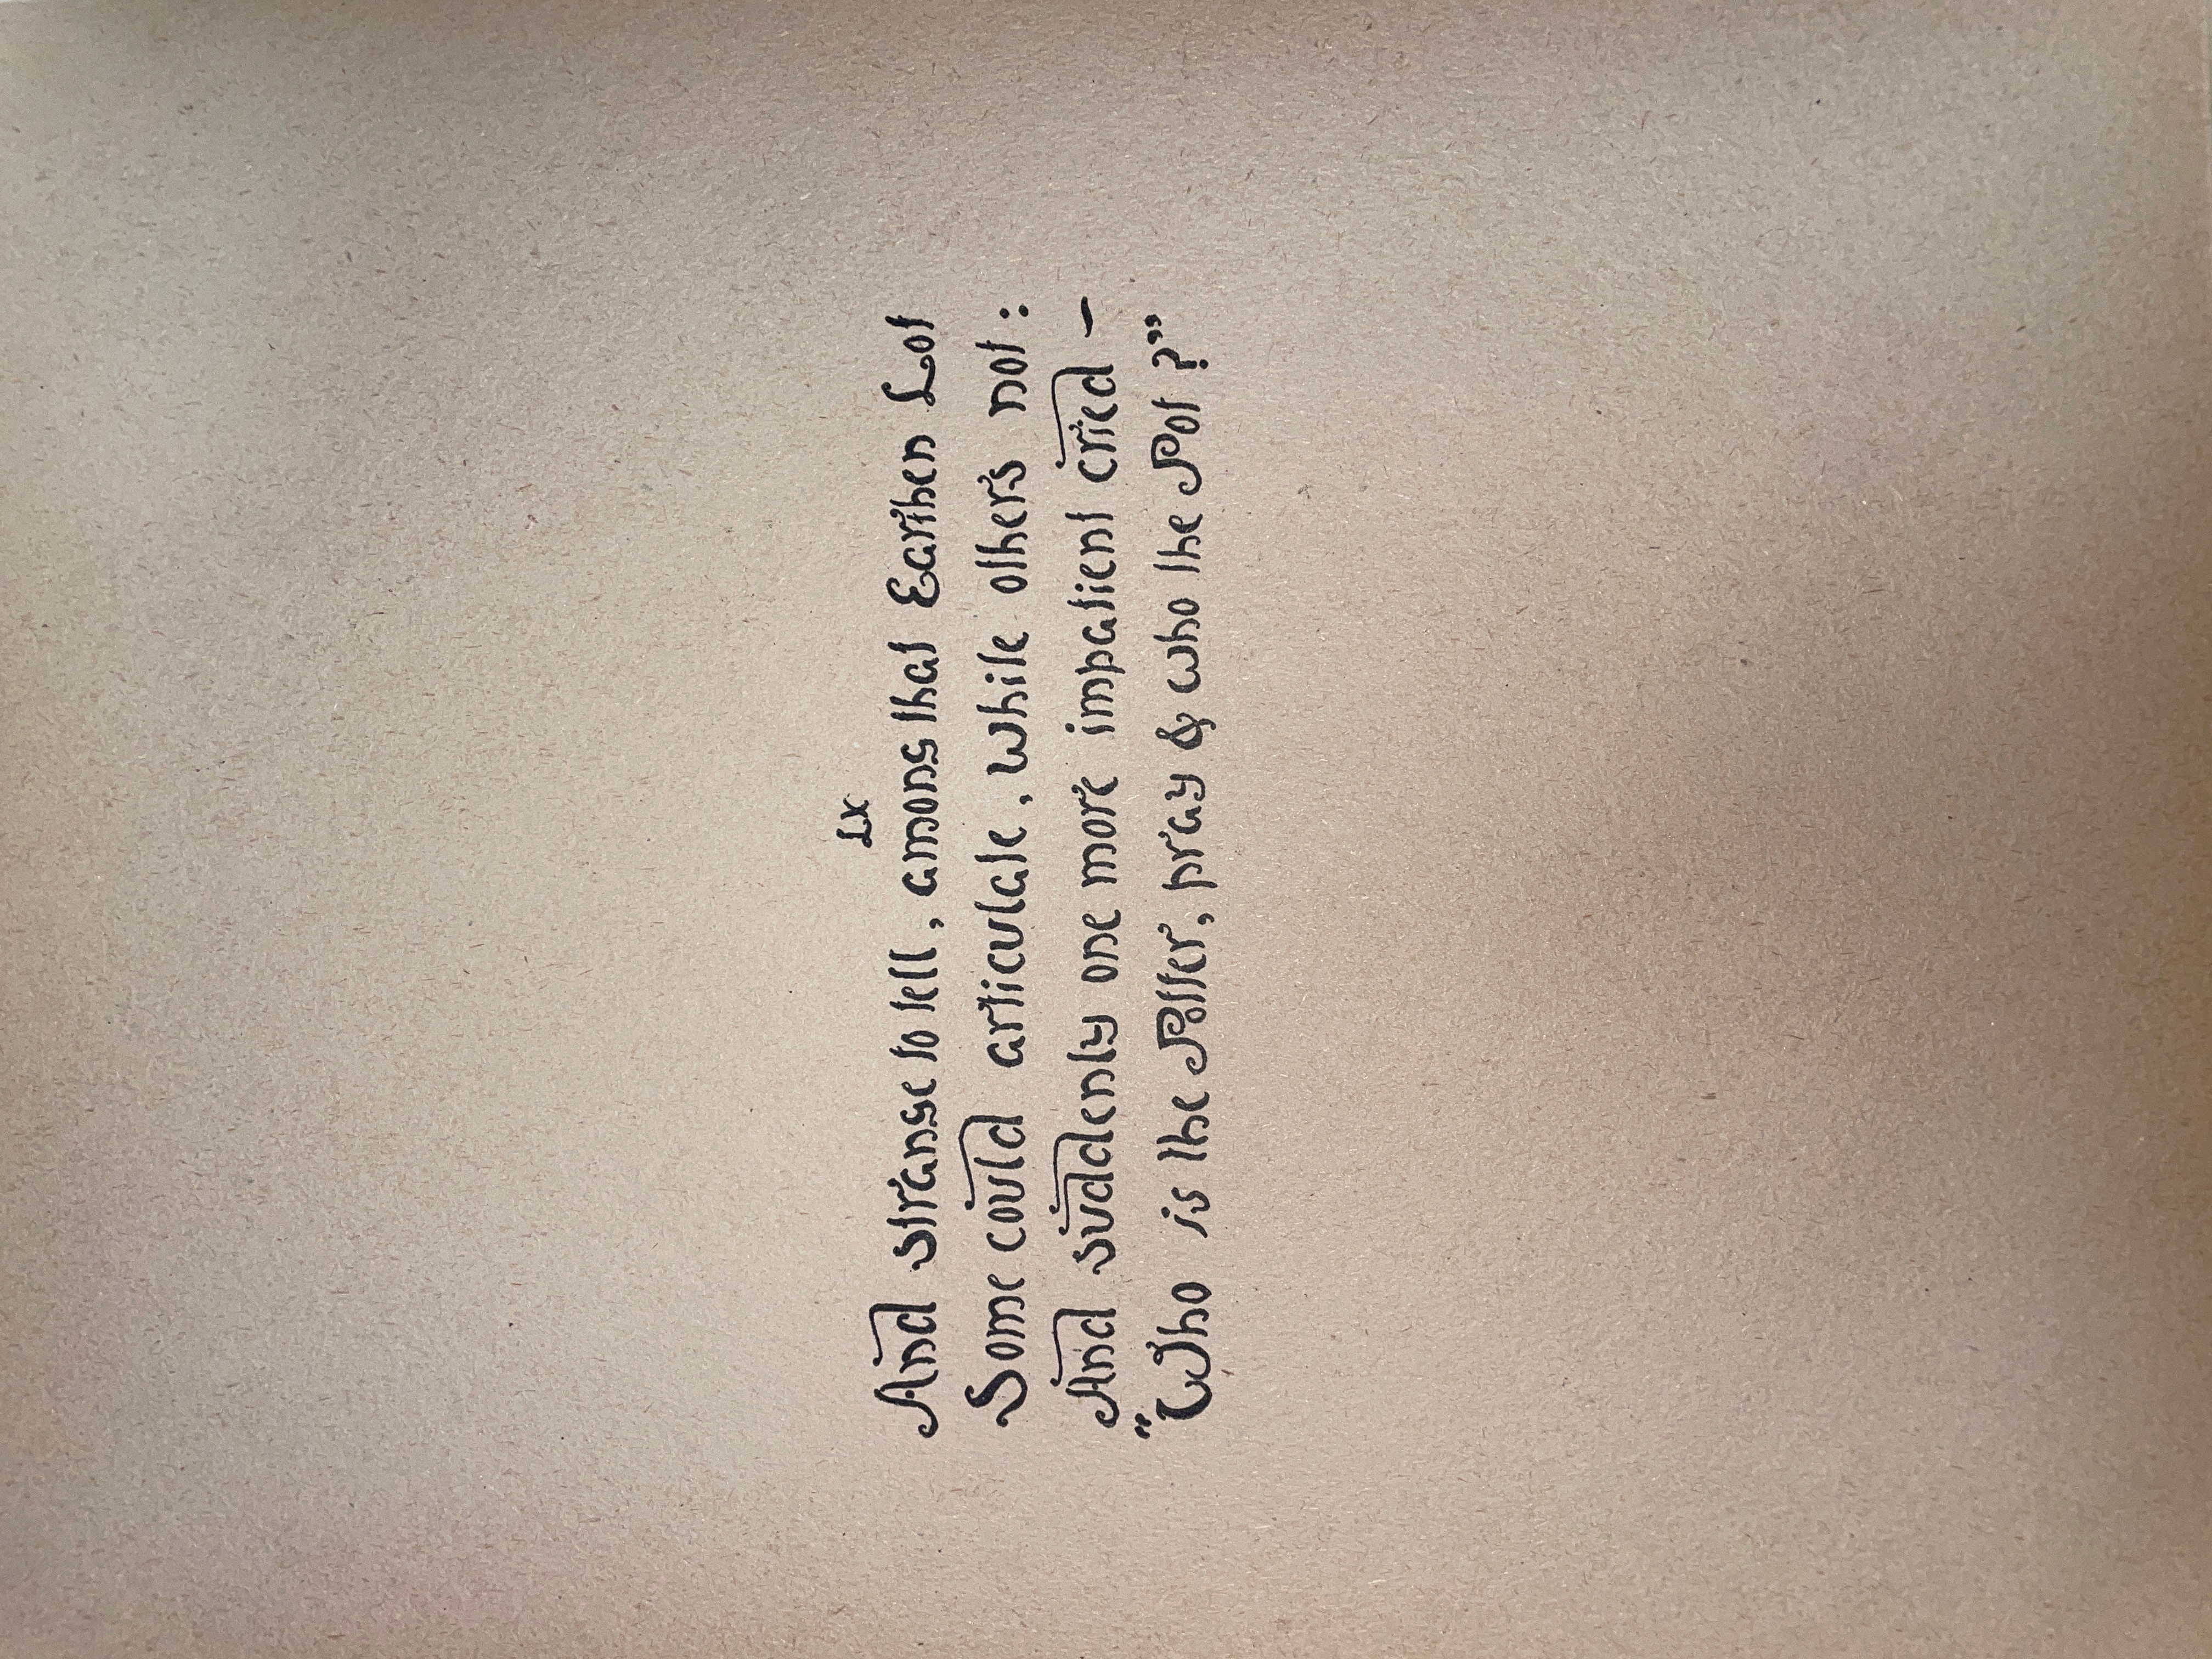 LX
And strange to tell, among that Earthen Lot
Some could articulate, while others not:
And suddenly one more impatient cried –
"Who is the Potter, pray & who the Pot?"